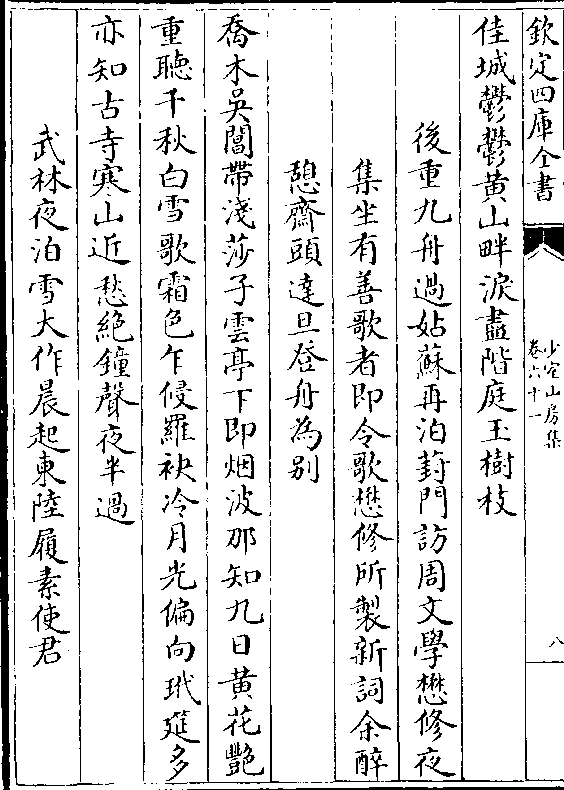 欽定四庫全書
少室山房集
卷六十一
八
佳城鬱鬱黃山畔淚盡階庭玉樹枝
後重九舟過姑蘇再泊葑門訪周文學懋修夜
集坐有善歌者即令歌懋修所製新詞余醉
憩齋頭達旦登舟為别
喬木吳閶帶淺莎子雲亭下即烟波那知九日黃花艷
重聽千秋白雪歌霜色乍侵羅袂冷月光偏向玳筵多
亦知古寺寒山近愁絶鐘聲夜半過
武林夜泊雪大作晨起東陸履素使君